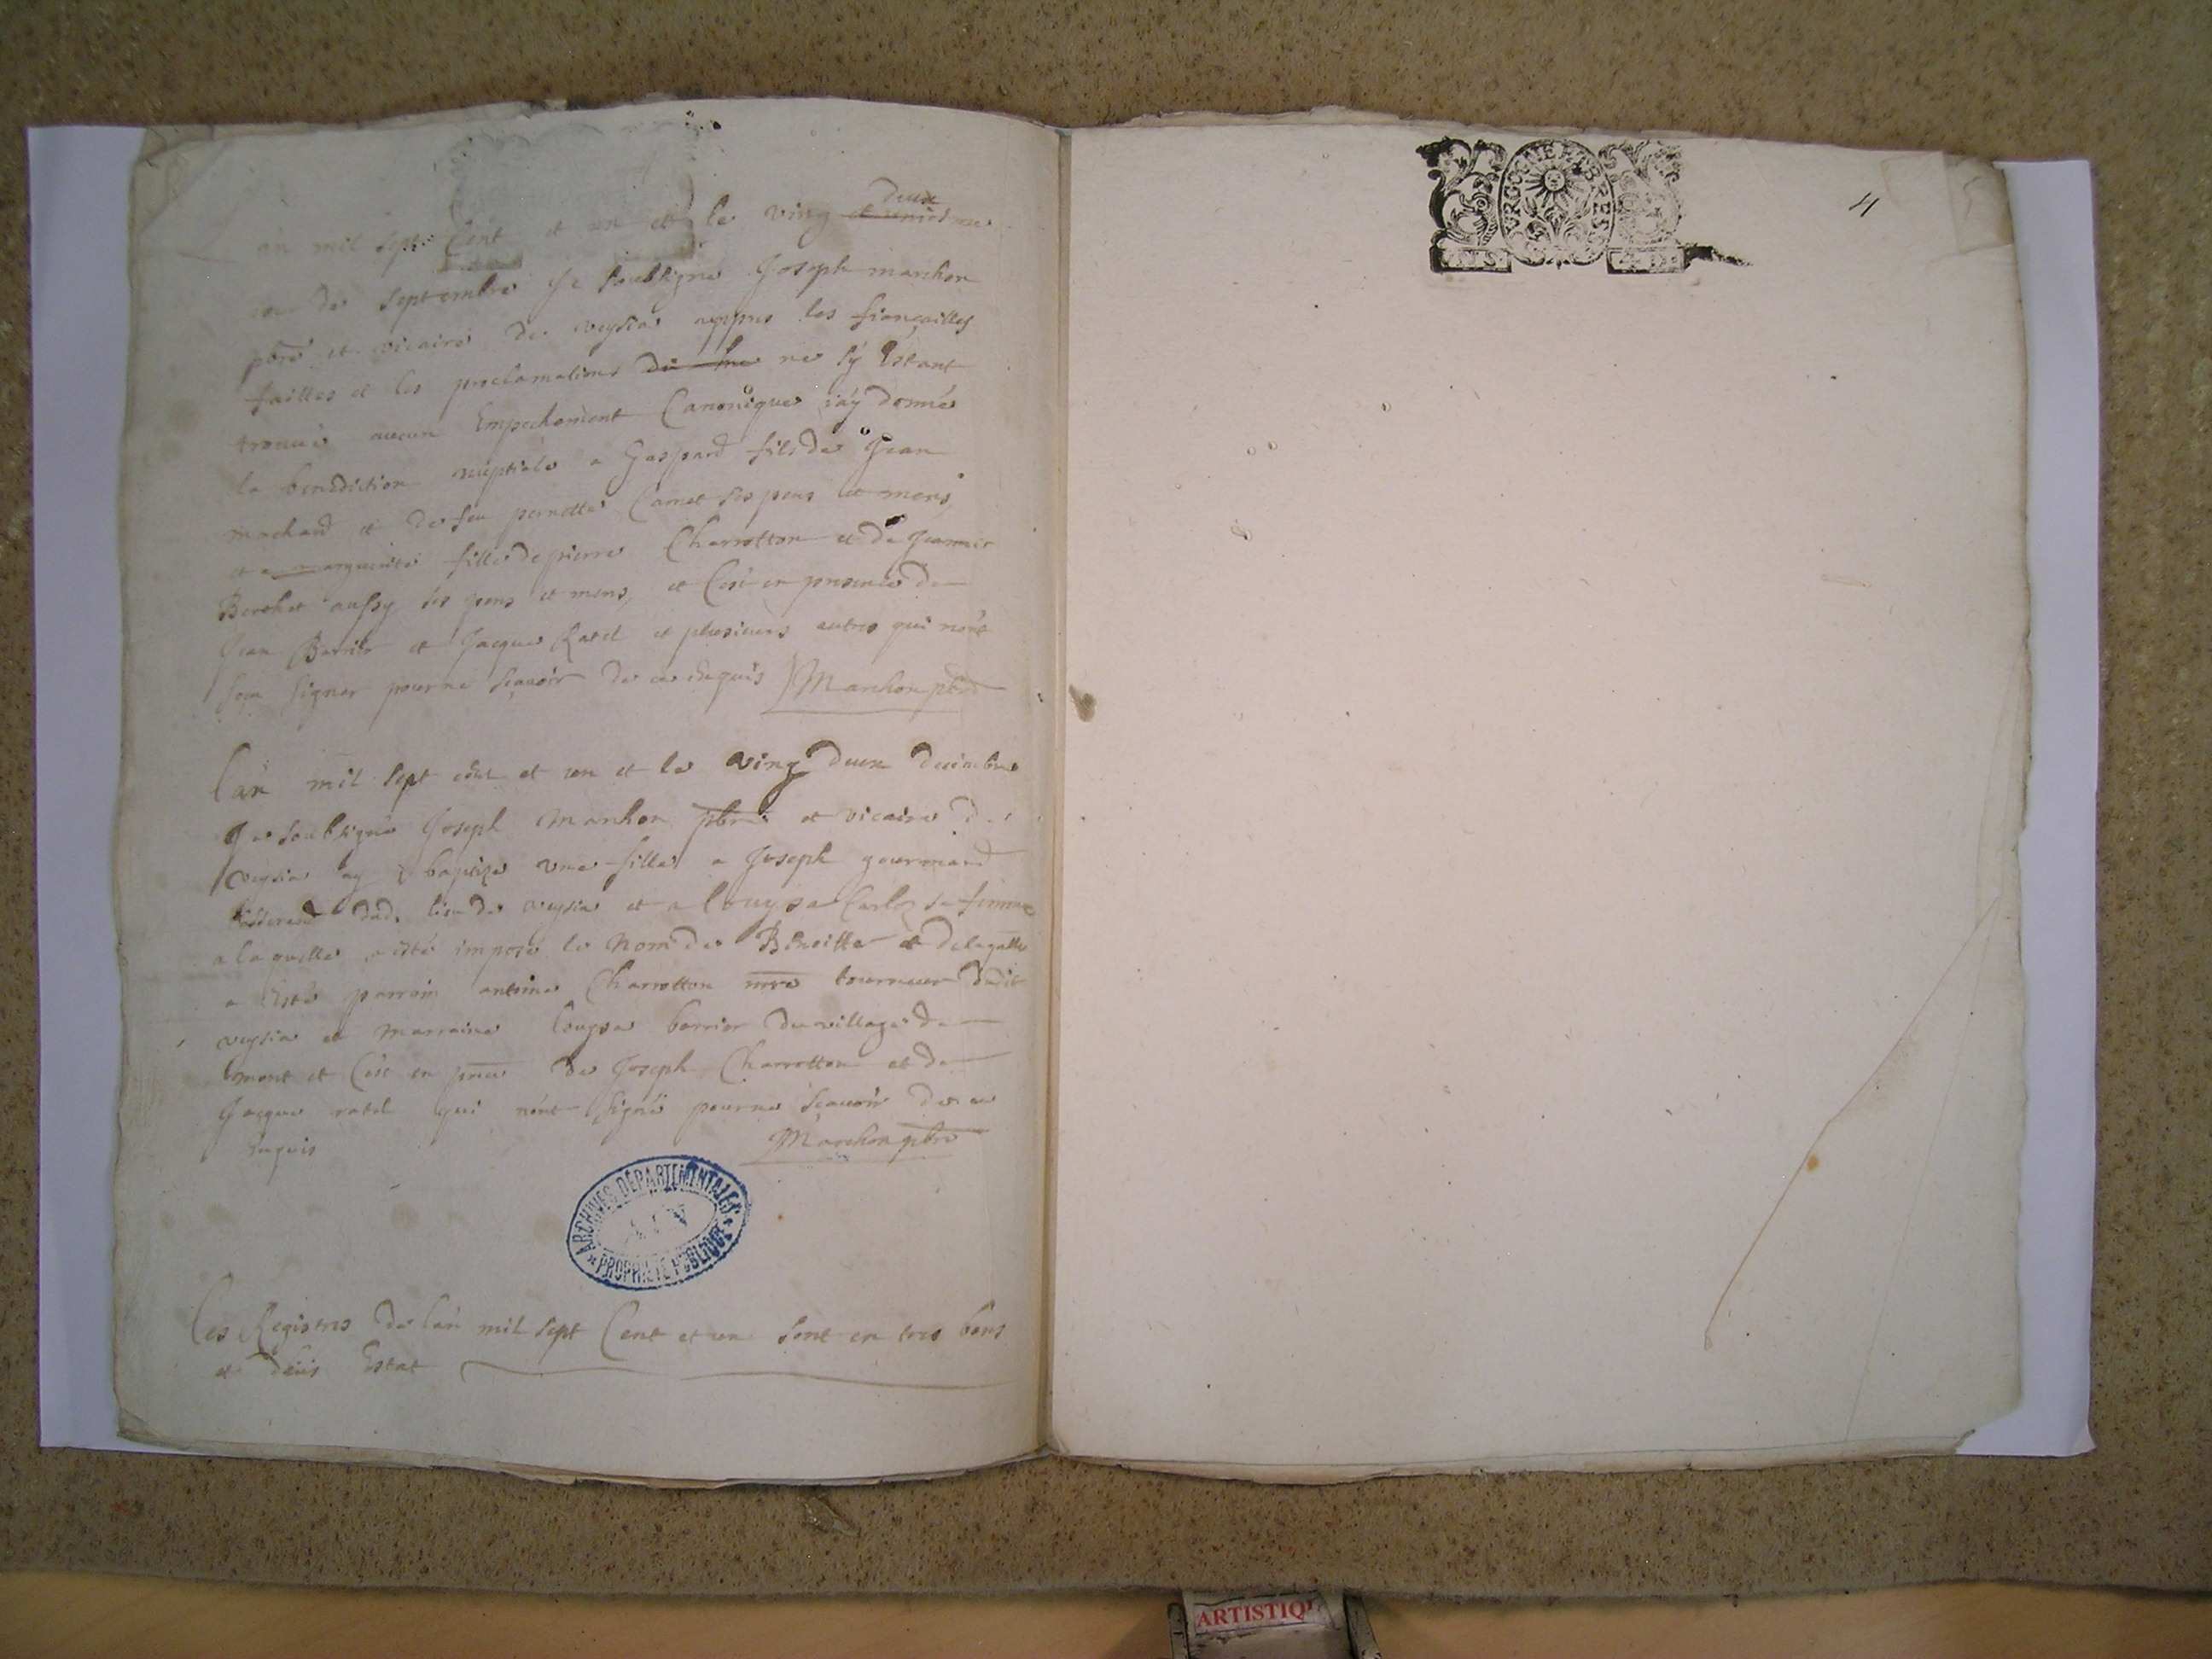 deux
an mil sept Cent et un et le ving et uniesme
jour de septembre Je soubsigné Joseph marchon
pbre et vicaire de veysia appres les fiançailles
faittes et les proclamations ne sy Estant
trouué aucun Empechement Canonique jáy donné
la benediction nuptiale a Gaspard fils de Jean
machard et de feu pernette Camet ses pere et mere,
et a marguerite fille de pierre Charrotton et de Jeanne
Berthet aussy ses pere et mere, et Cest en presence de
Jean Barrier et Jacque Ratel et plusieurs autres qui nont
sceu signer pour ne sçauoir de ce enquis Marchon pbre
lan mil sept cent et un et le ving deux decembre
Je soubsigné Joseph marchon pbre et vicaire de
veysia ay baptize une fille a Joseph gourmand
tisserand dud. lieu de veysia et a louyse Carloz sa femme
a laquelle a esté imposé le nom de Benoitte et de laquelle
a Esté parrain antoine Charrotton mre tourneur dudit
veysia et marraine louyse barrier du village de
mont et Cest en pnce de Joseph Charrotton et de
Jacque ratel qui nont signé pour ne sçauoir de ce
Enquis Marchon pbre
ARCHIVES DEPARTEMENTALES
PROPRIETE PUBLIQUE
les Registres de lan mil sept Cent et un sont en tres bons
et Estat
BURGOGNE ET BRESSE
ARTISTIQU